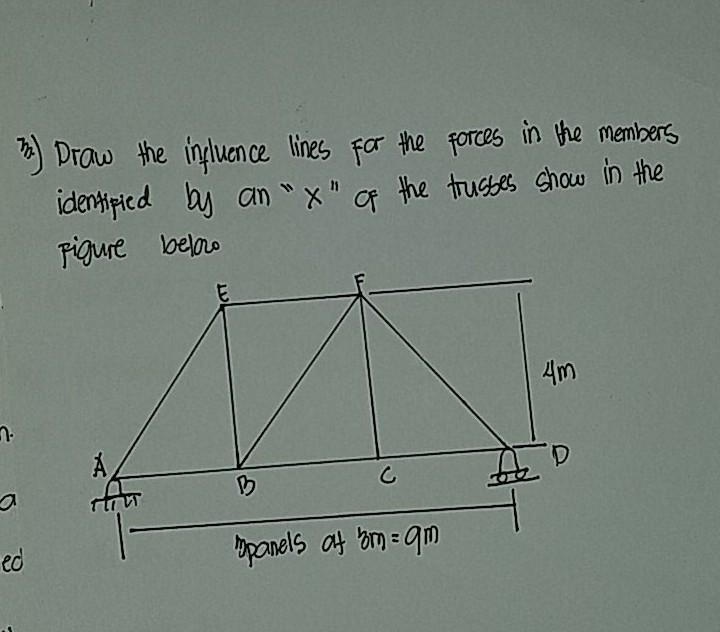 3) Draw the influence lines for the forces in the members
identified by an "x" of the trusses show in the
figure below
E
F
4m
A
B
C
D
3panels at 3m = 9m
n.
a
ed